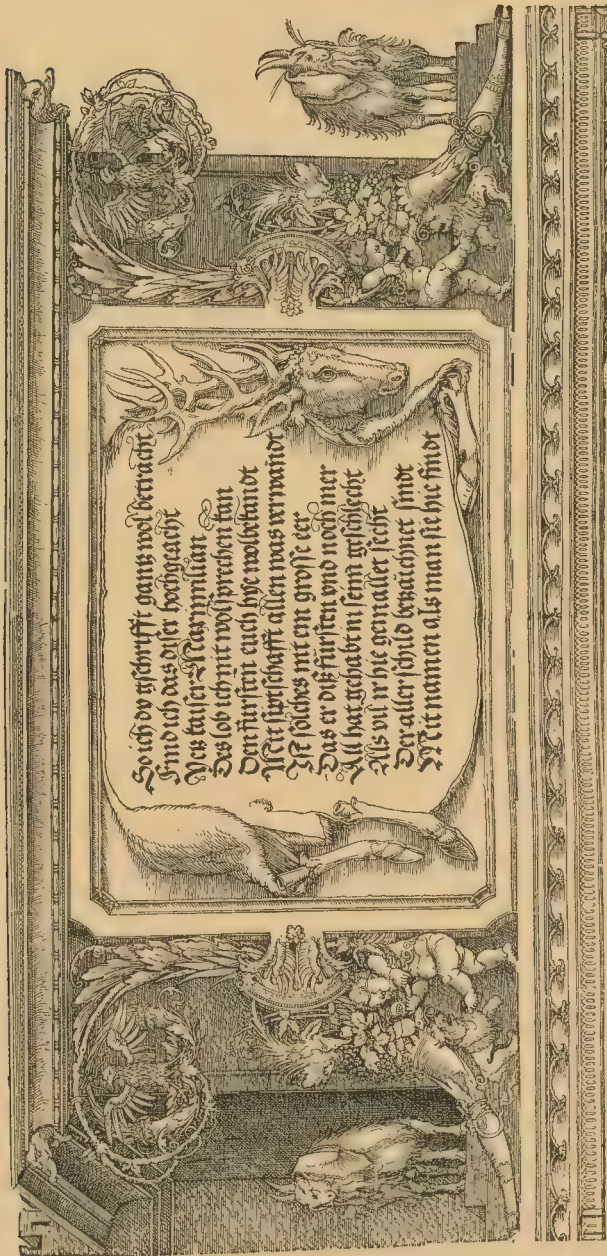 So ich dy gschrifft gantz wol betracht
Find ich das diser hochgeacht
Neꝛ kaiser Maximilian
Des lob ich nit volsprechen kan
Den fürsten euch hye wolbekandt
Mit siptschafft allen was verwandt
Ist solches nit ein grosse eer
Das er diß fürsten vnd noch mer
All hat gehabt in seim gschlecht
Als vil ir hie gemallet secht
Der aller schild bezaichnet sindt
Mit namen als man sie hie findt